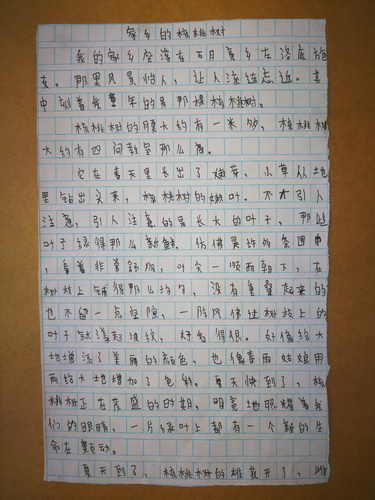 家乡的核桃树
我的家乡坐落在万月亮乡左洛底
支。那里风景怡人，让人流连忘返。其
中训着我童年的是那棵核桃树。
核桃树的腰大约有一米多，核桃树
大约有四间教室那么高。
它在春天里长出了嫩芽，小草从土地
里钻出头来，核桃树的嫩叶。不才引人
注意，引人注意的是长大的叶子，那些
叶子绿得那么新鲜，仿佛是许的条围巾
，看着非常舒服，叶尖一顺而朝下，在
树枝上铺得那么均匀，没有重叠起来的
也不留一点空隙，一阵风拂过树枝上的
叶子就漾起波纹，好看得很。好像给大
地增添了美丽的颜色，也像春雨姑娘用
雨给大地增加了色彩。夏天快到了，核
桃树正在茂盛的时期，明亮地照耀着我
们的眼睛，一片绿叶上都有一个新的生
命在颤动。
夏天到了，核桃树的雄花开了，雌